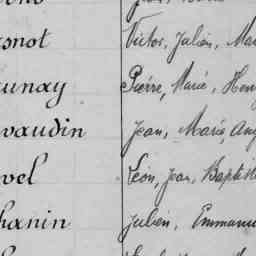 snot Victor, Julien, Mar
unay Pierre, Marie, Henry
vaudin Jean, Marie, Ang
vel Léon, Jean, Baptiste
hanin Julien, Emmanu